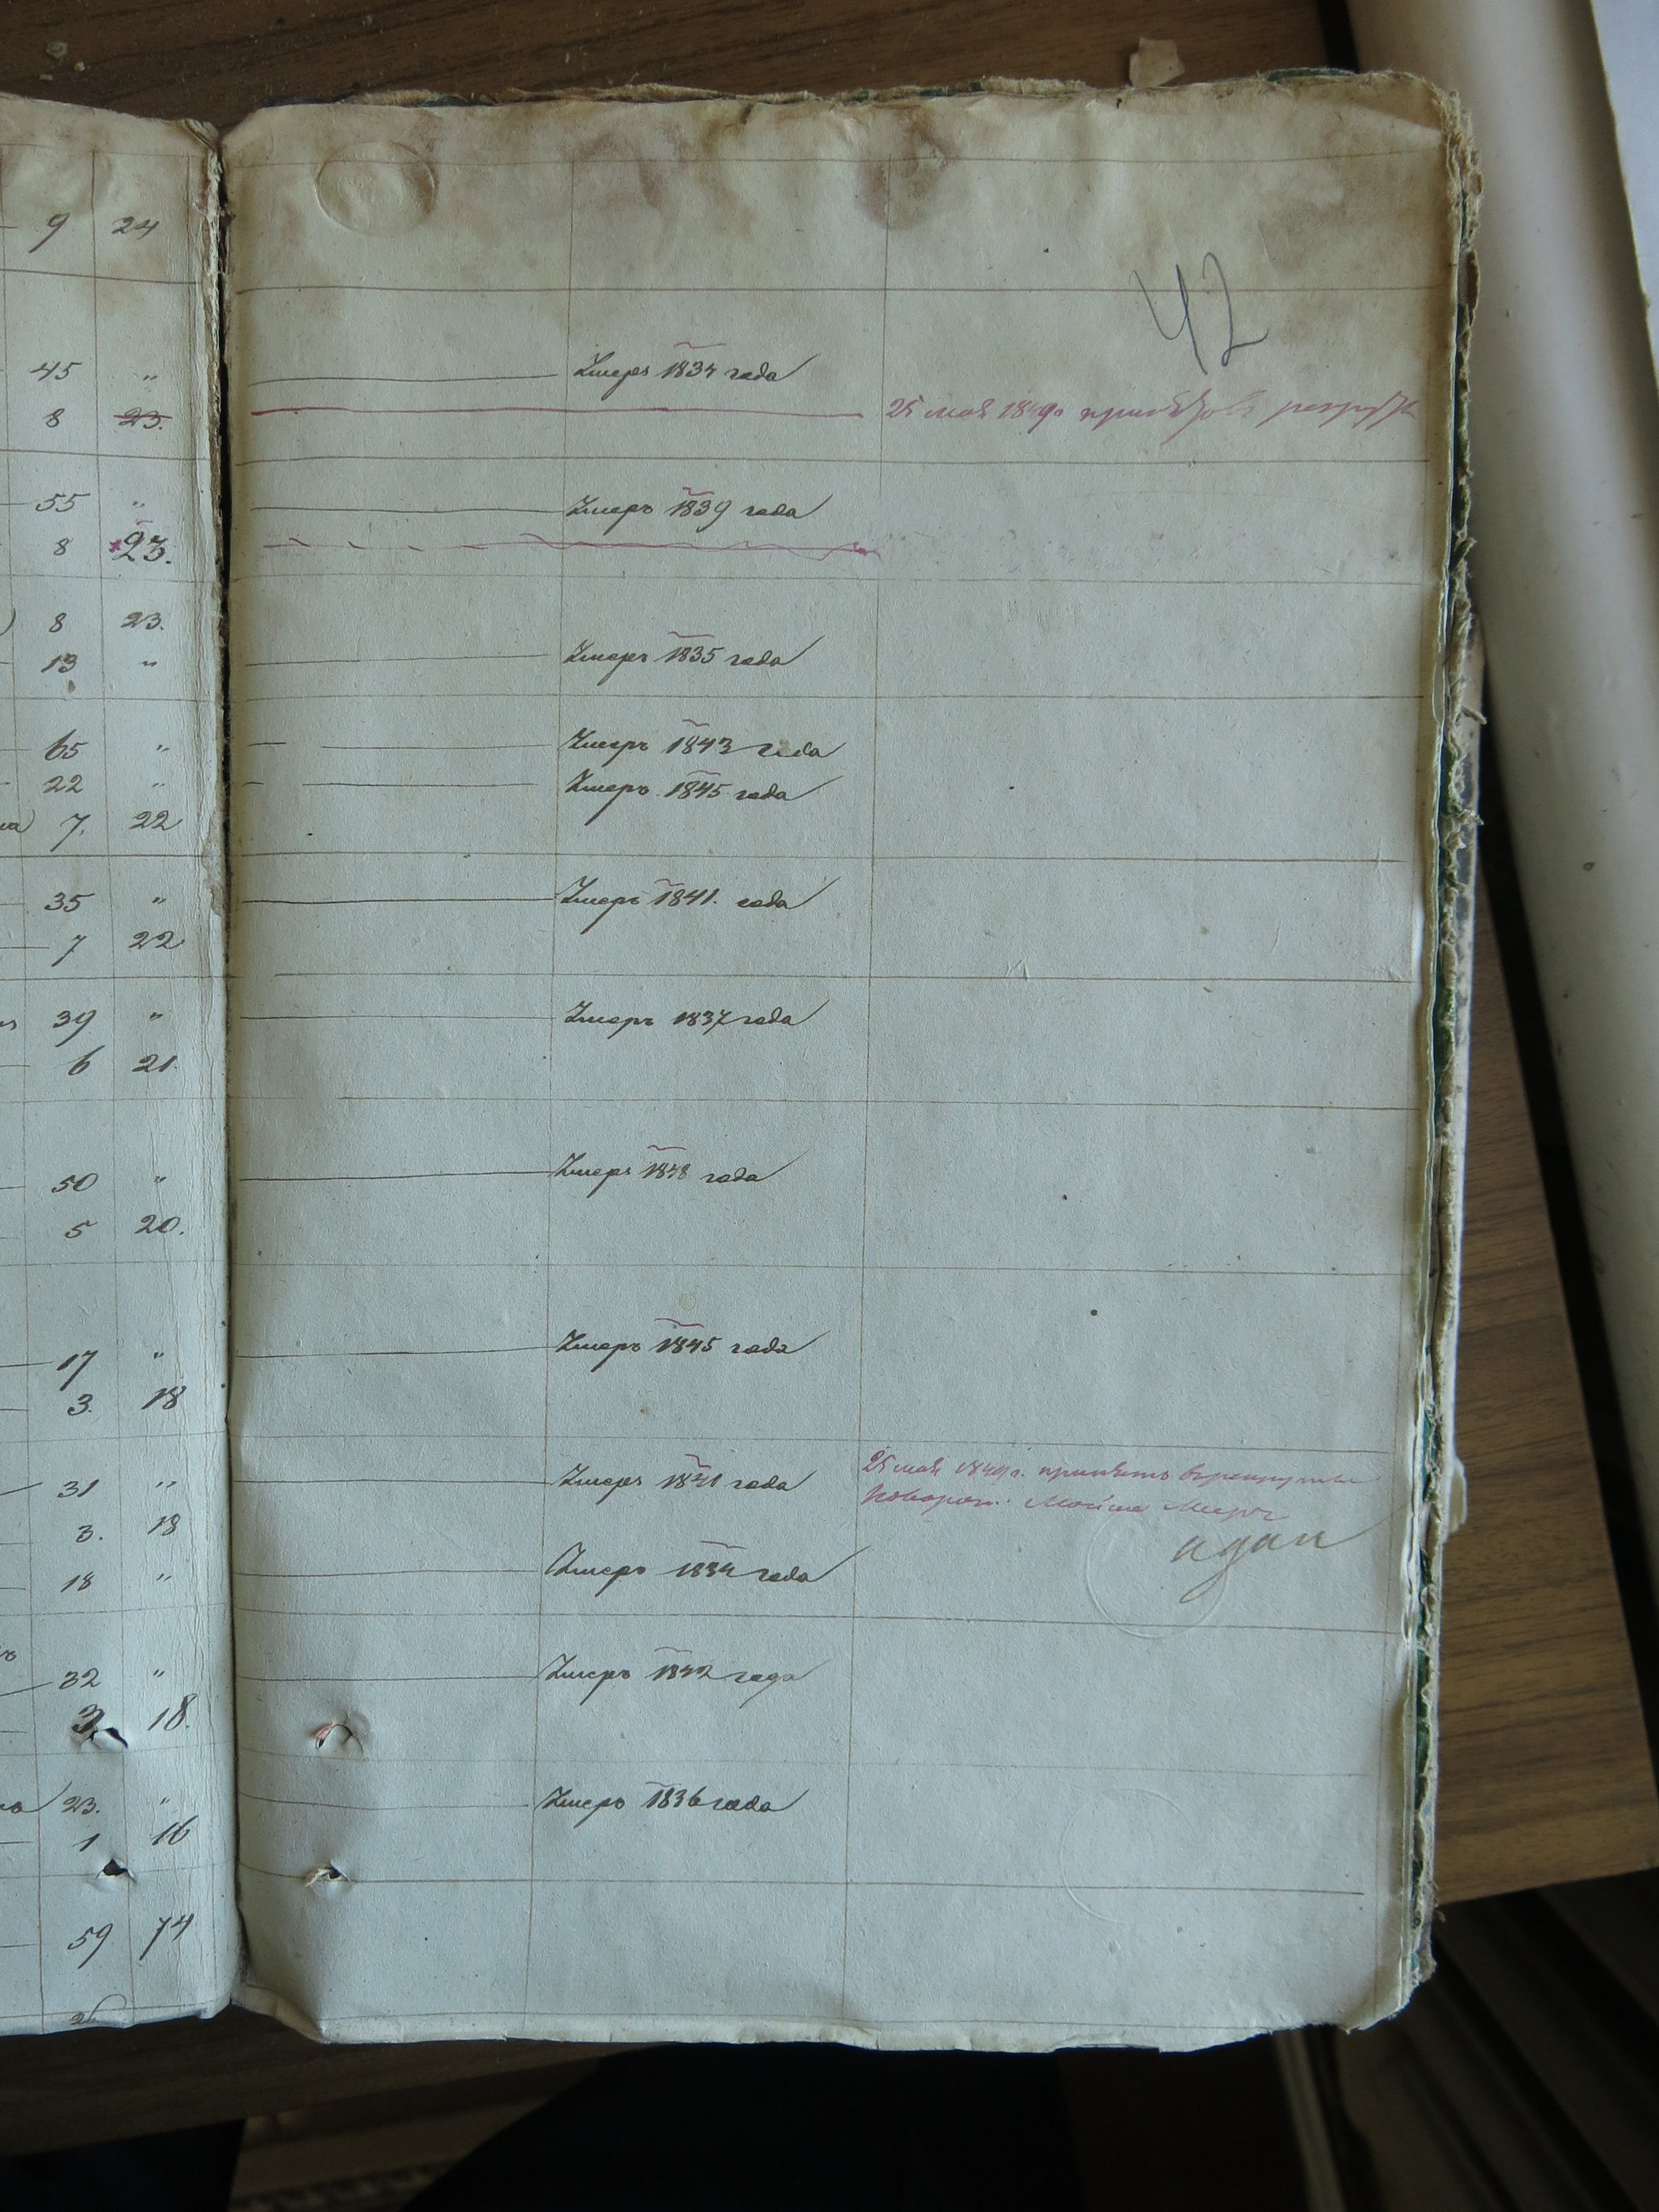 9 24
42
45 " Умеръ 1834 года
8 23. 25 мая 1849 г.
55 " Умеръ 1839 года
8 23.
8 23.
13 " Умеръ 1835 года
65 " Умеръ 1843 года
22 " Умеръ 1845 года
7. 22
35 " Умеръ 1841. года
7 22
39 " Умеръ 1837 года
6 21
50 " Умеръ 1848 года
5 20.
17 " Умеръ 1845 года
3. 18
31 " Умеръ 1841 года 25 мая 1849 г. принятъ в рекруты
3. 18
18 " Умеръ 1834 года
32 " Умеръ 1842 года
3 18.
23. " Умеръ 1836 года
1 16
59 74